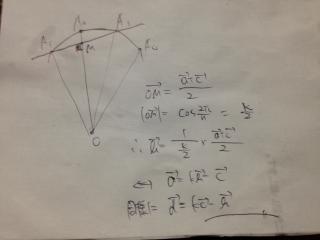 A₁ A₂ A₃ A₄
M
O
$\vec{OM} = \frac{\vec{a}+\vec{c}}{2}$
$|\vec{OM}| = \cos\frac{2\pi}{n} = \frac{k}{2}$
$\therefore \vec{b} = \frac{1}{\frac{k}{2}} \times \frac{\vec{a}+\vec{c}}{2}$
$\Leftrightarrow \vec{a} = k\vec{b} - \vec{c}$
$\vec{d} = k\vec{c} - \vec{b}$